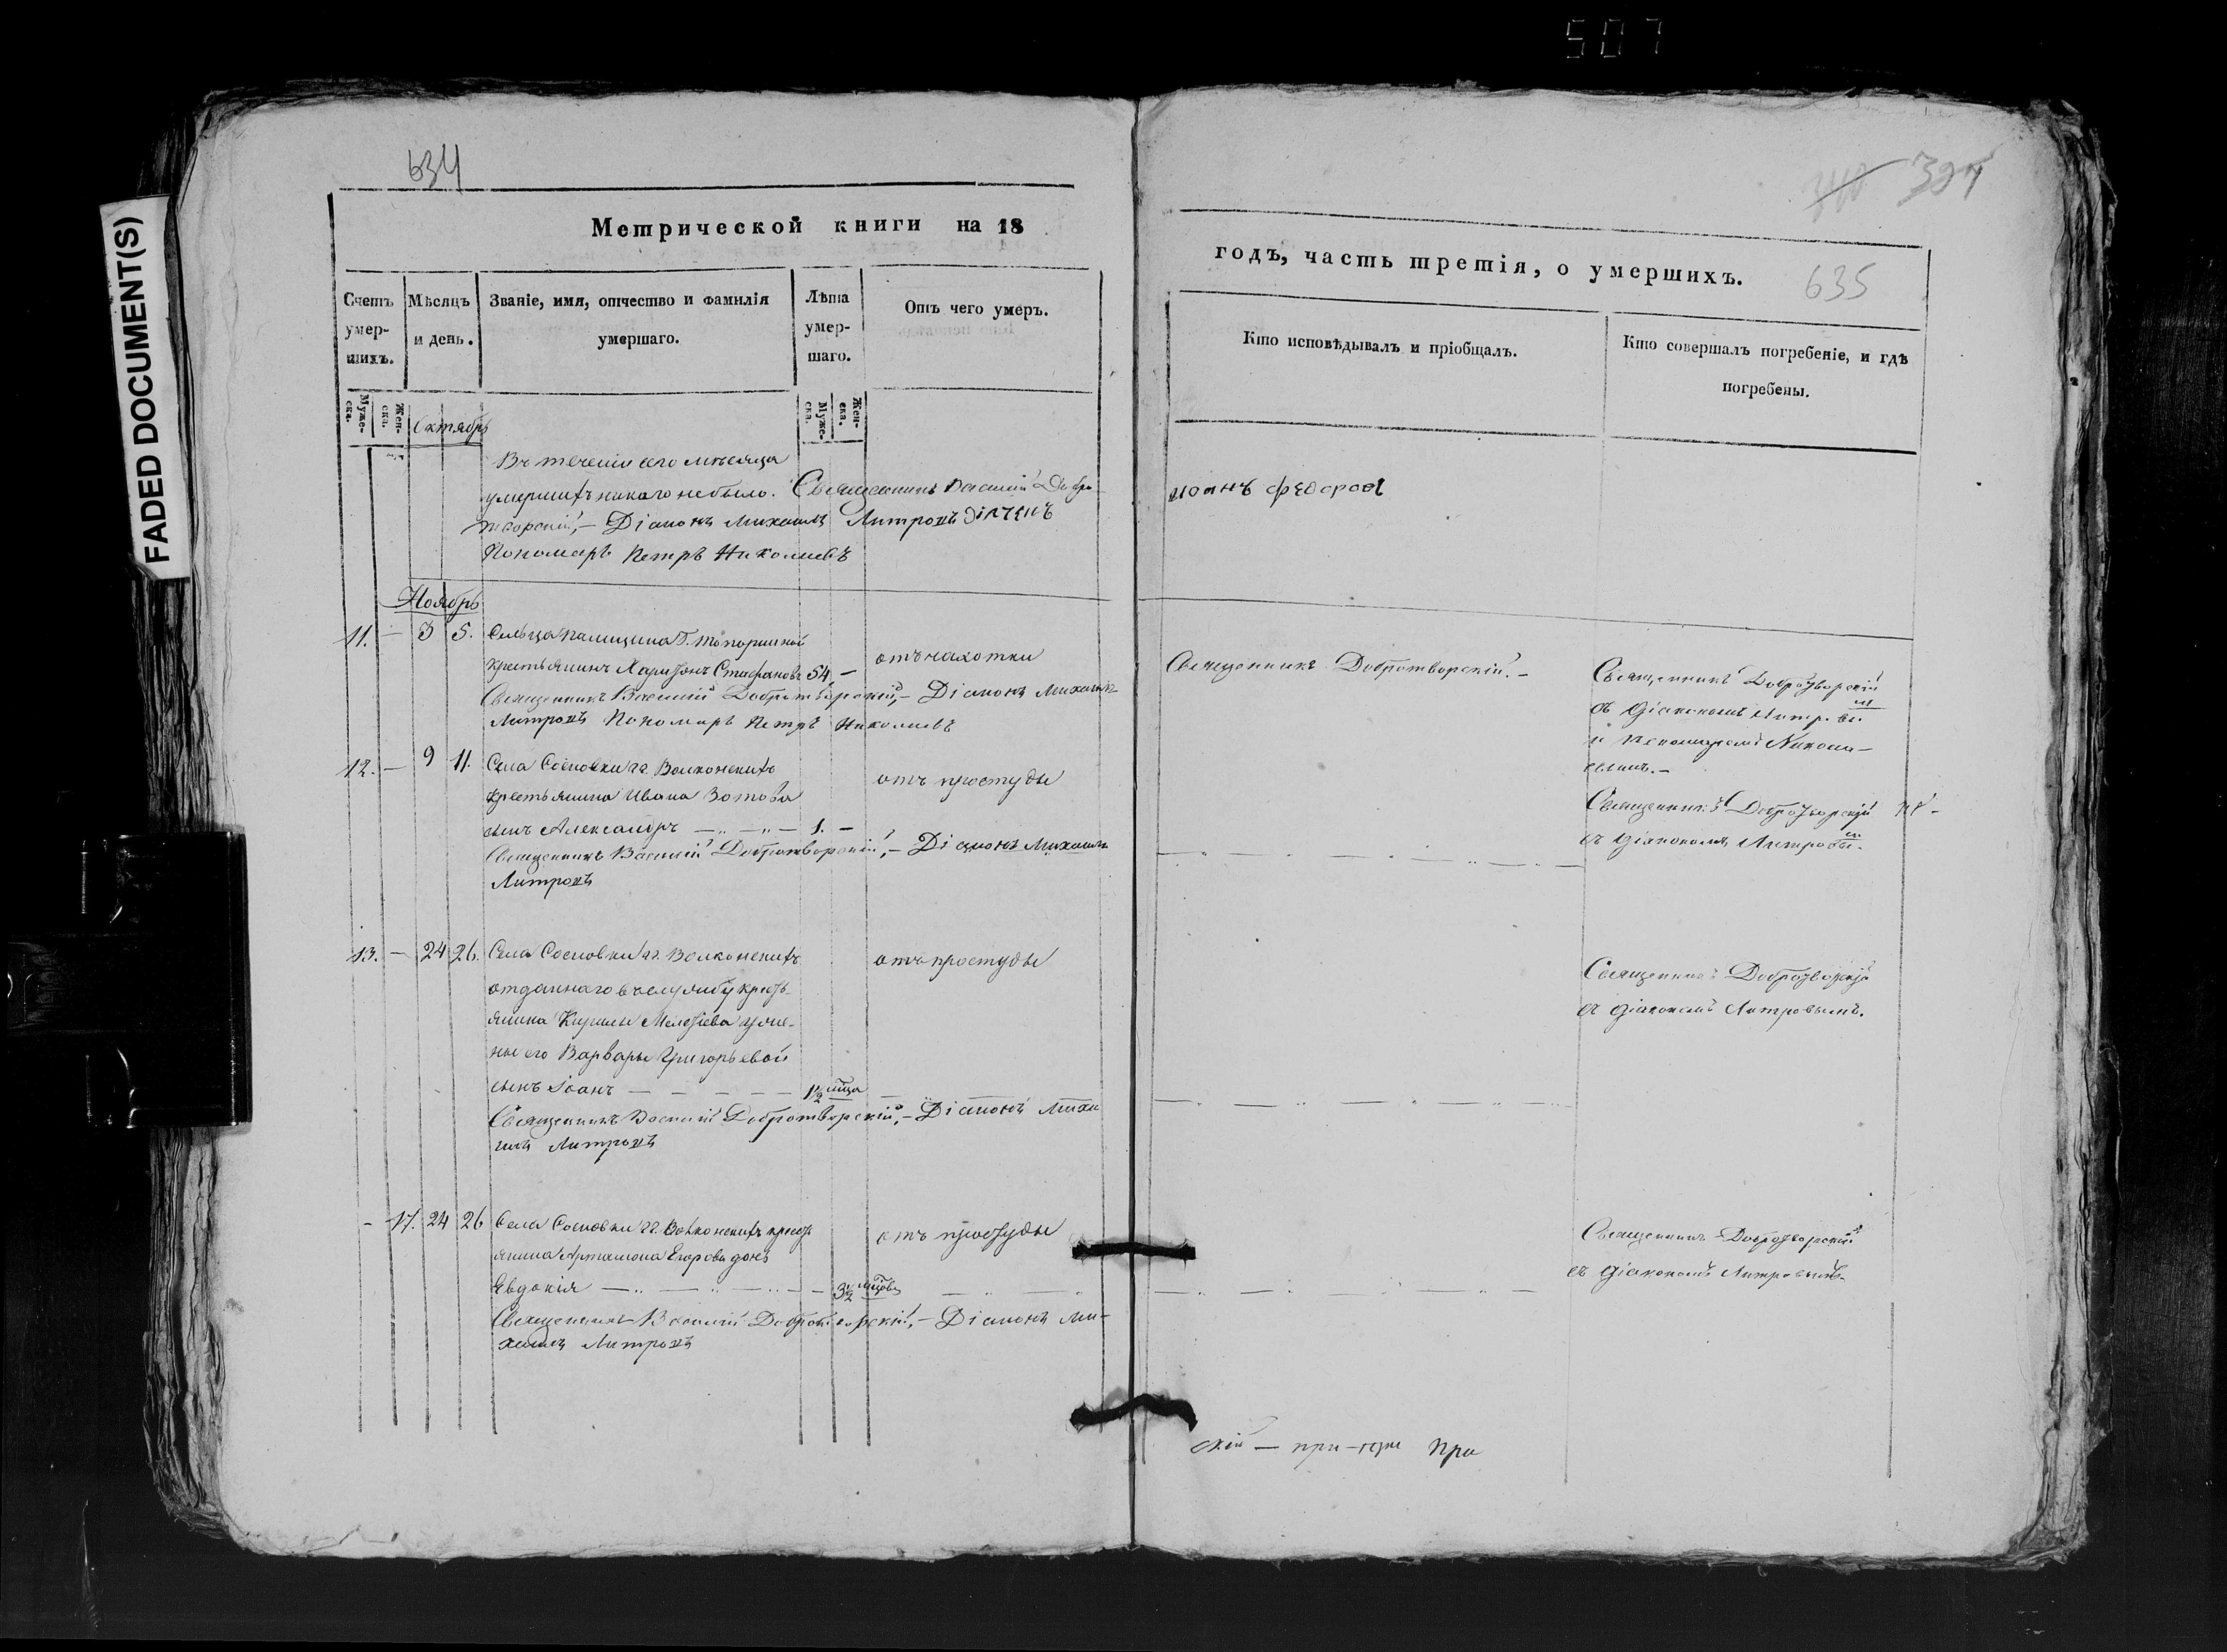 507
FADED DOCUMENT(S)
634
327
635
Метрической книги на 18
годъ, часть третія, о умершихъ.
Счетъ умер- шихъ.
Мѣсяцъ и день.
Званіе, имя, отчество и фамилія умершаго.
Лѣта умер- шаго.
Отъ чего умеръ.
Кто исповѣдывалъ и пріобщалъ.
Кто совершалъ погребеніе, и гдѣ погребены.
Муже- ска.
Жен- ска.
Муже- ска.
Жен- ска.
Октябрь
Въ теченіи сего мѣсяца
умершихъ никого небыло. Священникъ Василій Добро-
творскій,- Діаконъ Михаилъ Митровъ Дьячекъ иоанъ федоровъ
Пономарь Петръ Николаевъ
Ноябрь
11. - 3 5. Сельца
крестьянинъ Харитонъ Стефановъ 54 -
отъ чахотки
Священникъ Добротворскій.-
Священникъ Добротворскій
съ Діакономъ
и Пономаремъ Никола-
евымъ.-
Священникъ Василій Добротворскій,- Діаконъ Михаилъ
Митровъ Пономарь Петръ Николаевъ
12. - 9 11. Села Сосновки гг. Волконскихъ
крестьянина Ивана Зотова
сынъ Александръ 1. -
отъ простуды
Священникъ Добротворскій
съ Діакономъ
Священникъ Василій Добротворскій,- Діаконъ Михаилъ
Митровъ
13. - 24 26. Села Сосновки гг. Волконскихъ
отданнаго въ службу кресть-
янина Кирилы жe-
ны его Варвары Григорьевой
сынъ Іоанъ - - - - - 1½ мца
отъ простуды
Священникъ Добротворскій
съ Діакономъ Митровымъ.
Священникъ Василій Добротворскій,- Діаконъ Миха
илъ Митровъ
- 17. 24 26 Села Сосновки гг. Волконскихъ кресть
янина Артамона Егорова дочь
Евдокія 3½ мцовъ
отъ простуды
Священникъ Добротворскій
съ Діакономъ Митровымъ-
Священникъ Василій Добротворскій,- Діаконъ Ми-
хаилъ Митровъ
скій - при- при